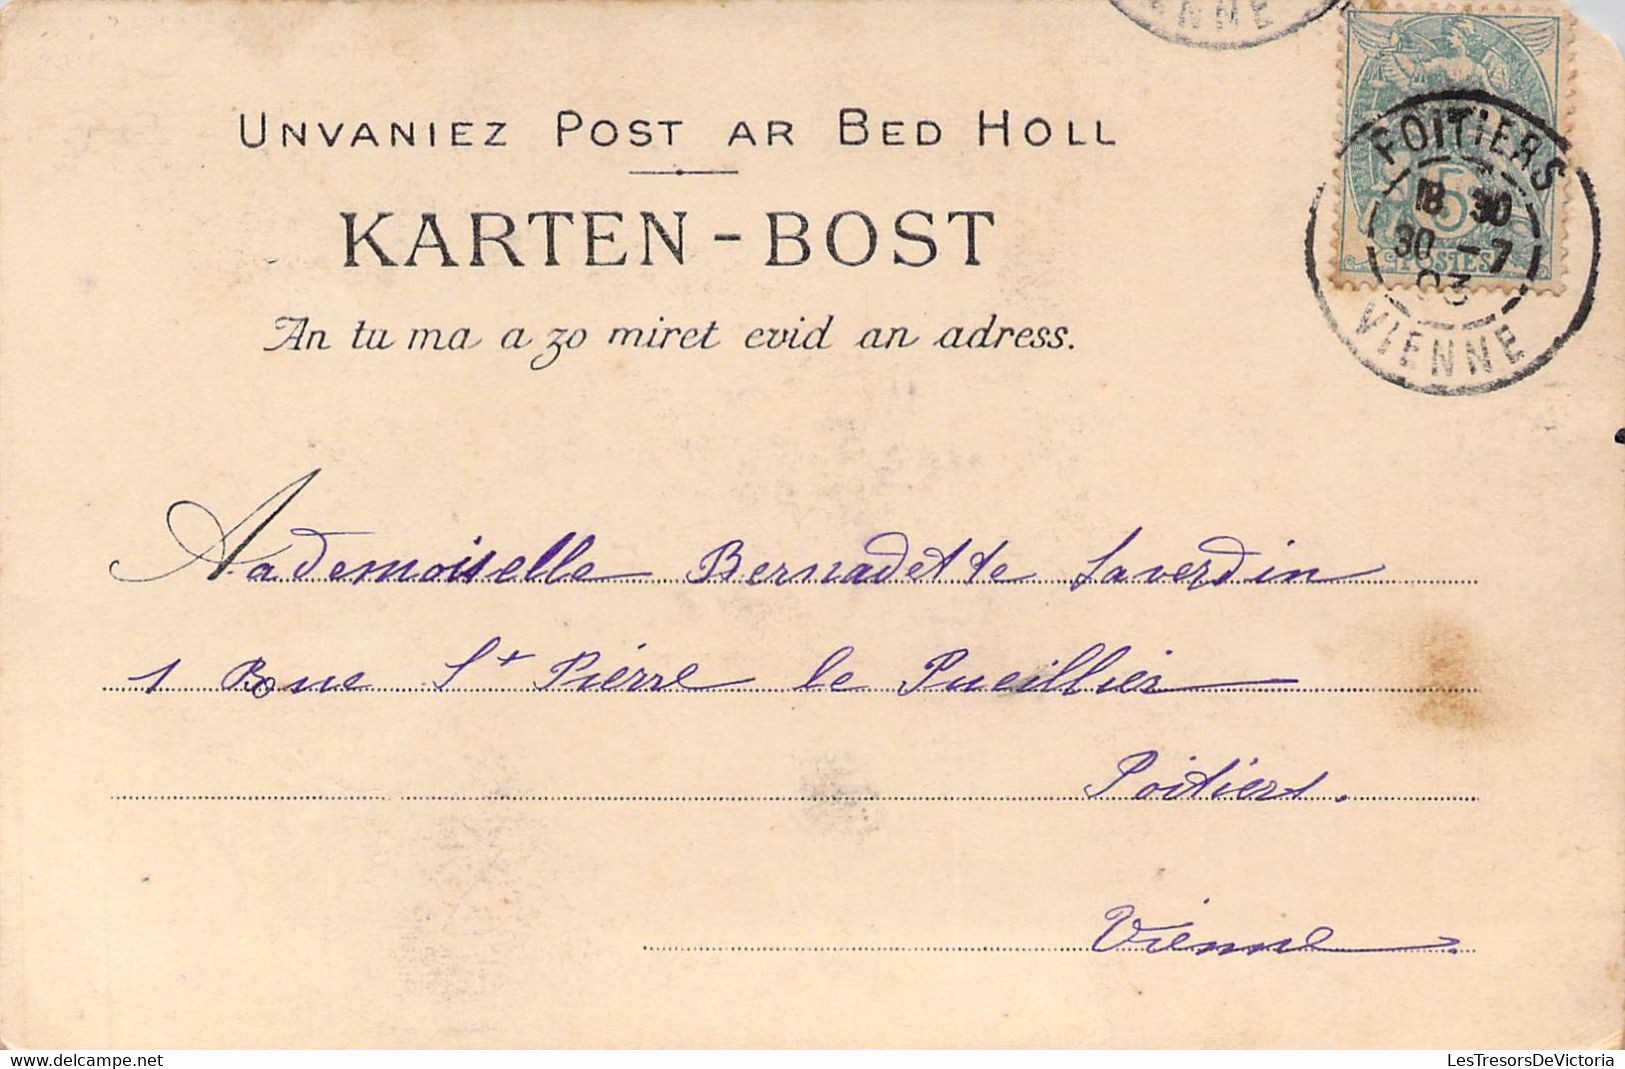 ENNE
UNVANIEZ POST AR BED HOLL
KARTEN-BOST
An tu ma a zo miret evid an adress.
POITIERS
18 30
30 -7
03
VIENNE
5
POSTES
Mademoiselle Bernadette Laverdin
1 Rue St Pierre le Pueillier
Poitiers.
Vienne.
LesTresorsDeVictoria
https://www.delcampe.net